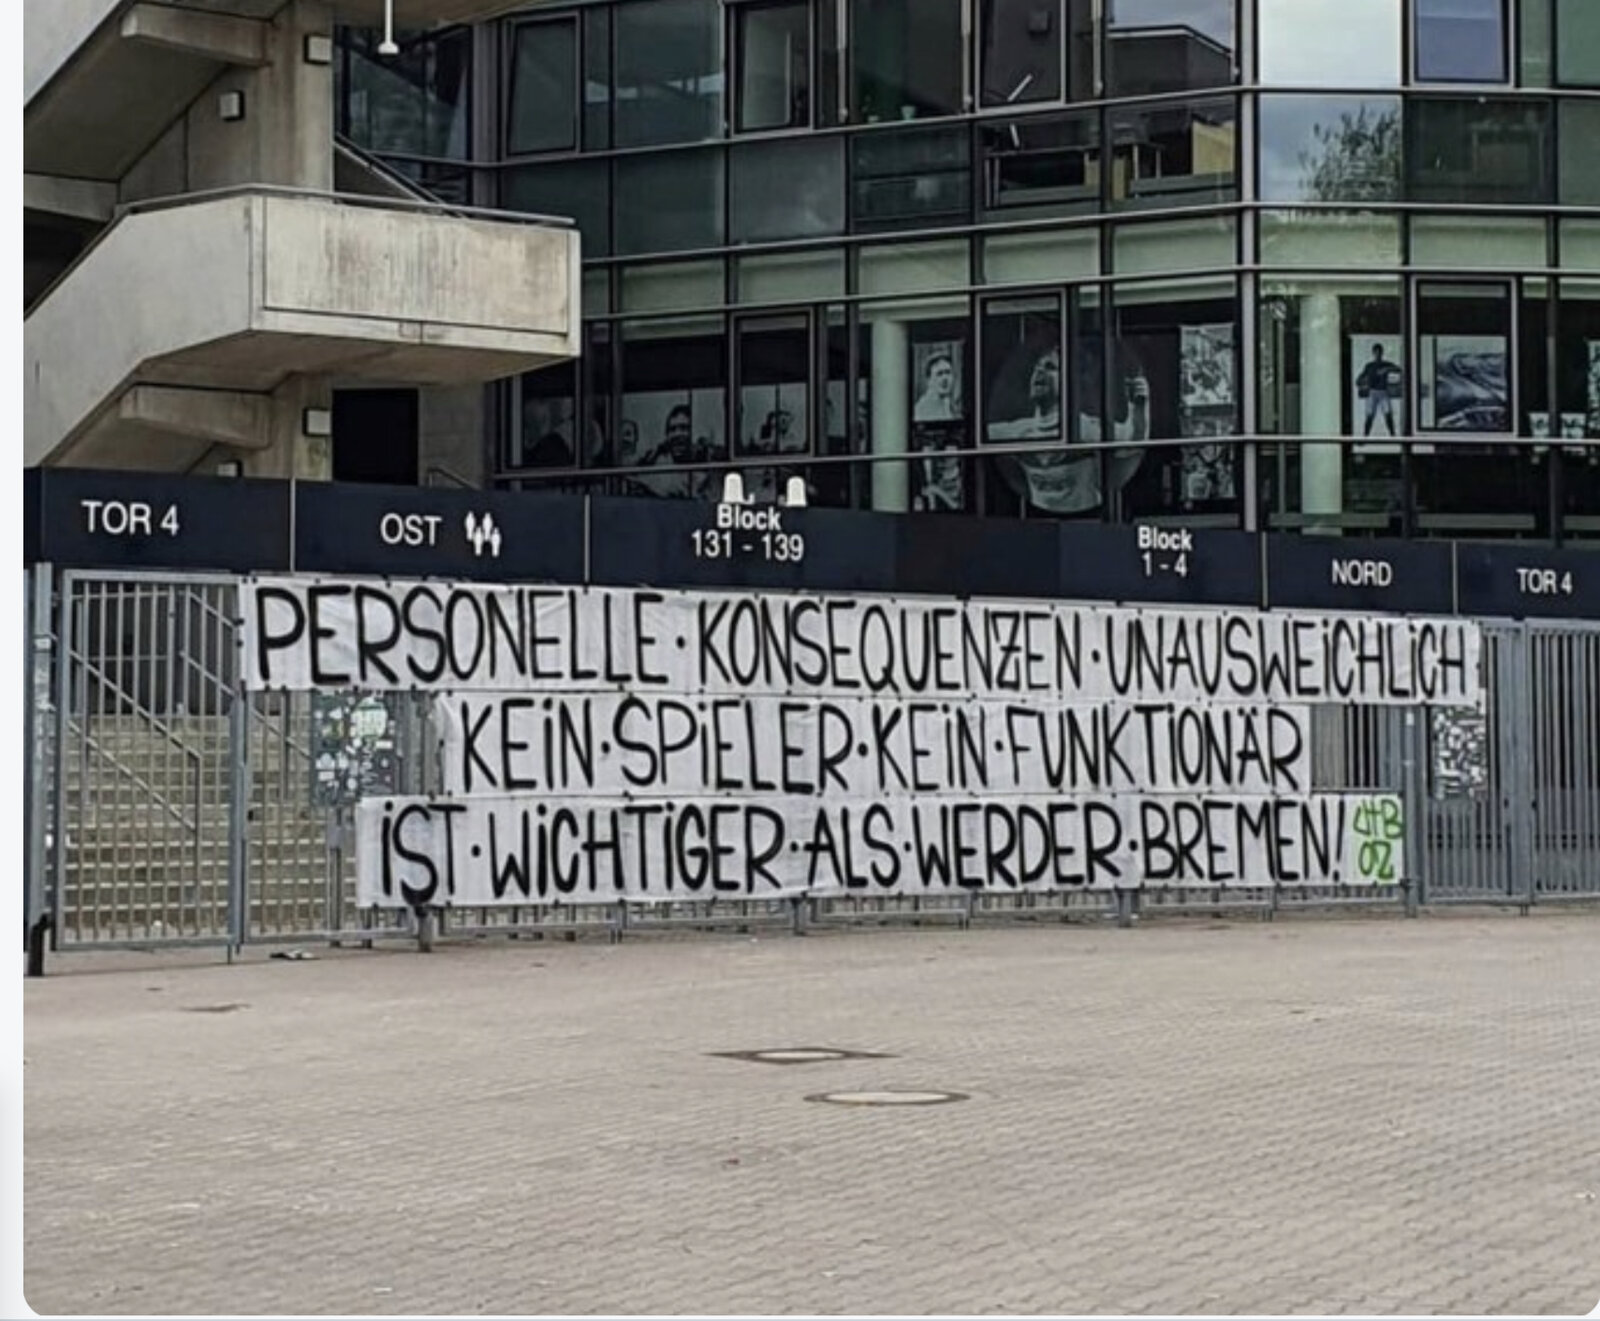 TOR 4
OST
Block
131 - 139
Block
1 - 4
NORD
TOR 4
PERSONELLE · KONSEQUENZEN · UNAUSWEiCHLiCH
KEiN · SPiELER · KEiN · FUNKTiONÄR
iST · WiCHTiGER · ALS · WERDER · BREMEN!
UHB
02